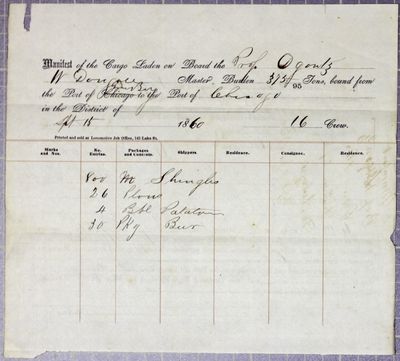 Manifest of the Cargo Laden on Board the Prop Ogontz
W Master, Burden 375 95 Tons, bound from
the Port of Chicago to the Port of Chicago
in the District of
Sept 15 1860 16 Crew.
Printed and sold at Locomotive Job Office, 142 Lake St.
Marks and Nos. No. Entries. Packages and Contents. Shippers. Residence. Consignee. Residence.
800 M Shingles
26 Plows
4 Bbl Potatoes
30 Pkg